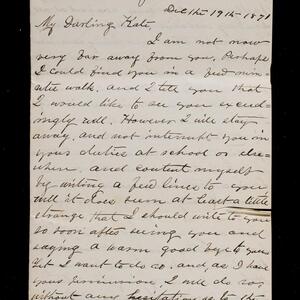 Dec 19th 1871
My Darling Kate,
I am not now
very far away from you. Perhaps
I could find you in a few min-
utes walk, and I tell you that
I would like to see you exceed-
ingly well. However I will stay
away, and not interrupt you in
your duties at school or else-
where, and content myself
by writing a few lines to you
will it does seem at least a little
strange that I should write to you
so soon after seeing you and
saying a warm good bye to you
but I want to do so, and, as I have
your permission, I will do so,
without any hesitation